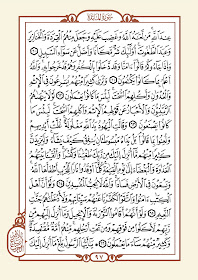 سورة المائدة
عند الله من لعنه الله وغضب عليه وجعل منهم القردة والخنازير
وعبد الطاغوت أولئك شر مكانا وأضل عن سواء السبيل
وإذا جاءوكم قالوا ءامنا وقد دخلوا بالكفر وهم قد خرجوا به والله
أعلم بما كانوا يكتمون وترى كثيرا منهم يسارعون في الإثم
والعدوان وأكلهم السحت لبئس ما كانوا يعملون لولا ينهاهم
الربانيون والأحبار عن قولهم الإثم وأكلهم السحت لبئس ما
كانوا يصنعون وقالت اليهود يد الله مغلولة غلت أيديهم
ولعنوا بما قالوا بل يداه مبسوطتان ينفق كيف يشاء وليزيدن
كثيرا منهم ما أنزل إليك من ربك طغيانا وكفرا وألقينا بينهم
العداوة والبغضاء إلى يوم القيامة كلما أوقدوا نارا للحرب أطفأها الله
ويسعون في الأرض فسادا والله لا يحب المفسدين ولو أن أهل
الكتاب ءامنوا واتقوا لكفرنا عنهم سيئاتهم ولأدخلناهم جنات
النعيم ولو أنهم أقاموا التوراة والإنجيل وما أنزل إليهم من
ربهم لأكلوا من فوقهم ومن تحت أرجلهم منهم أمة مقتصدة
وكثير منهم ساء ما يعملون يأيها الرسول بلغ ما أنزل إليك
٩٧